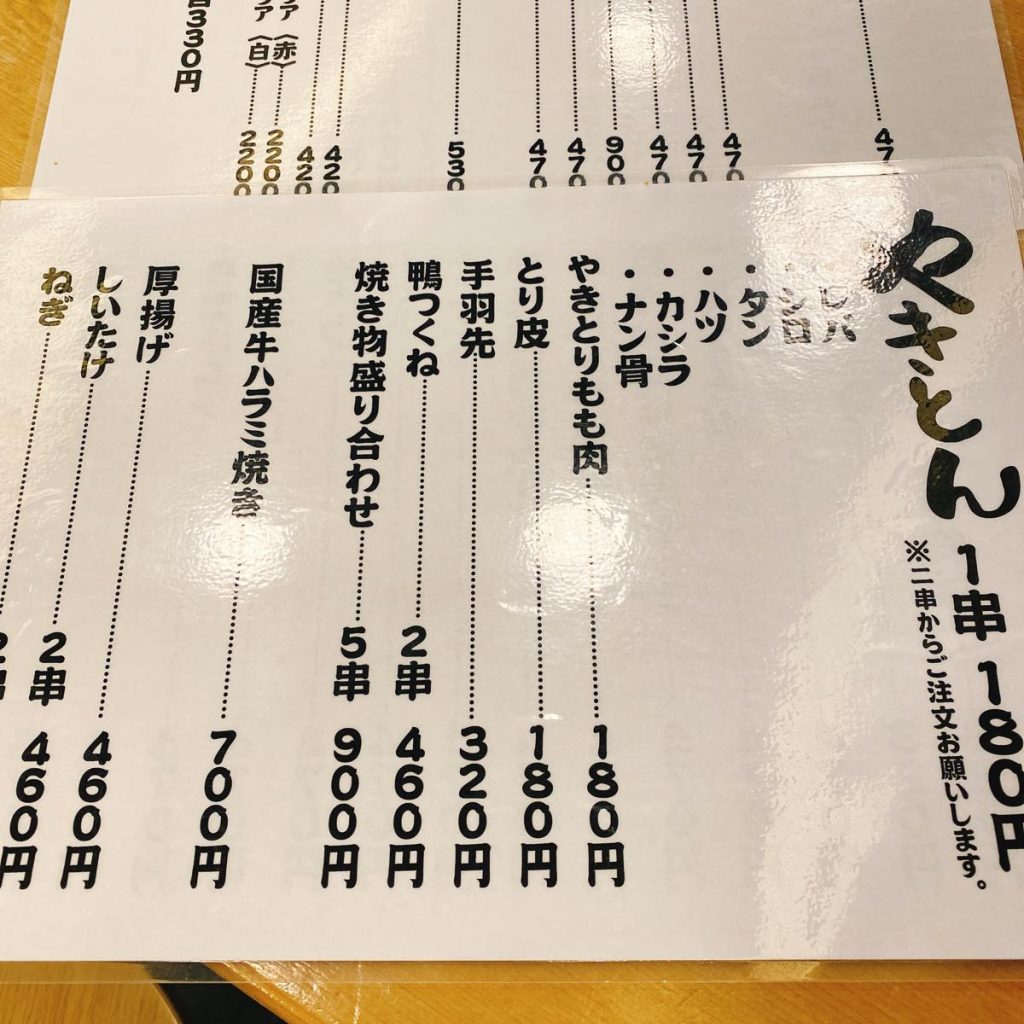 470
470
470
470
900
470
470
530
420
420
ア（赤）……2200
ア（白）……2200
330円
やきとん 1串 180円
※二串からご注文お願いします。
・レバ
・シロ
・タン
・ハツ
・カシラ
・ナン骨
やきとりもも肉……180円
とり皮……180円
手羽先……320円
鴨つくね……2串 460円
焼き物盛り合わせ……5串 900円
国産牛ハラミ焼き……700円
厚揚げ……460円
しいたけ……2串 460円
ねぎ……2串